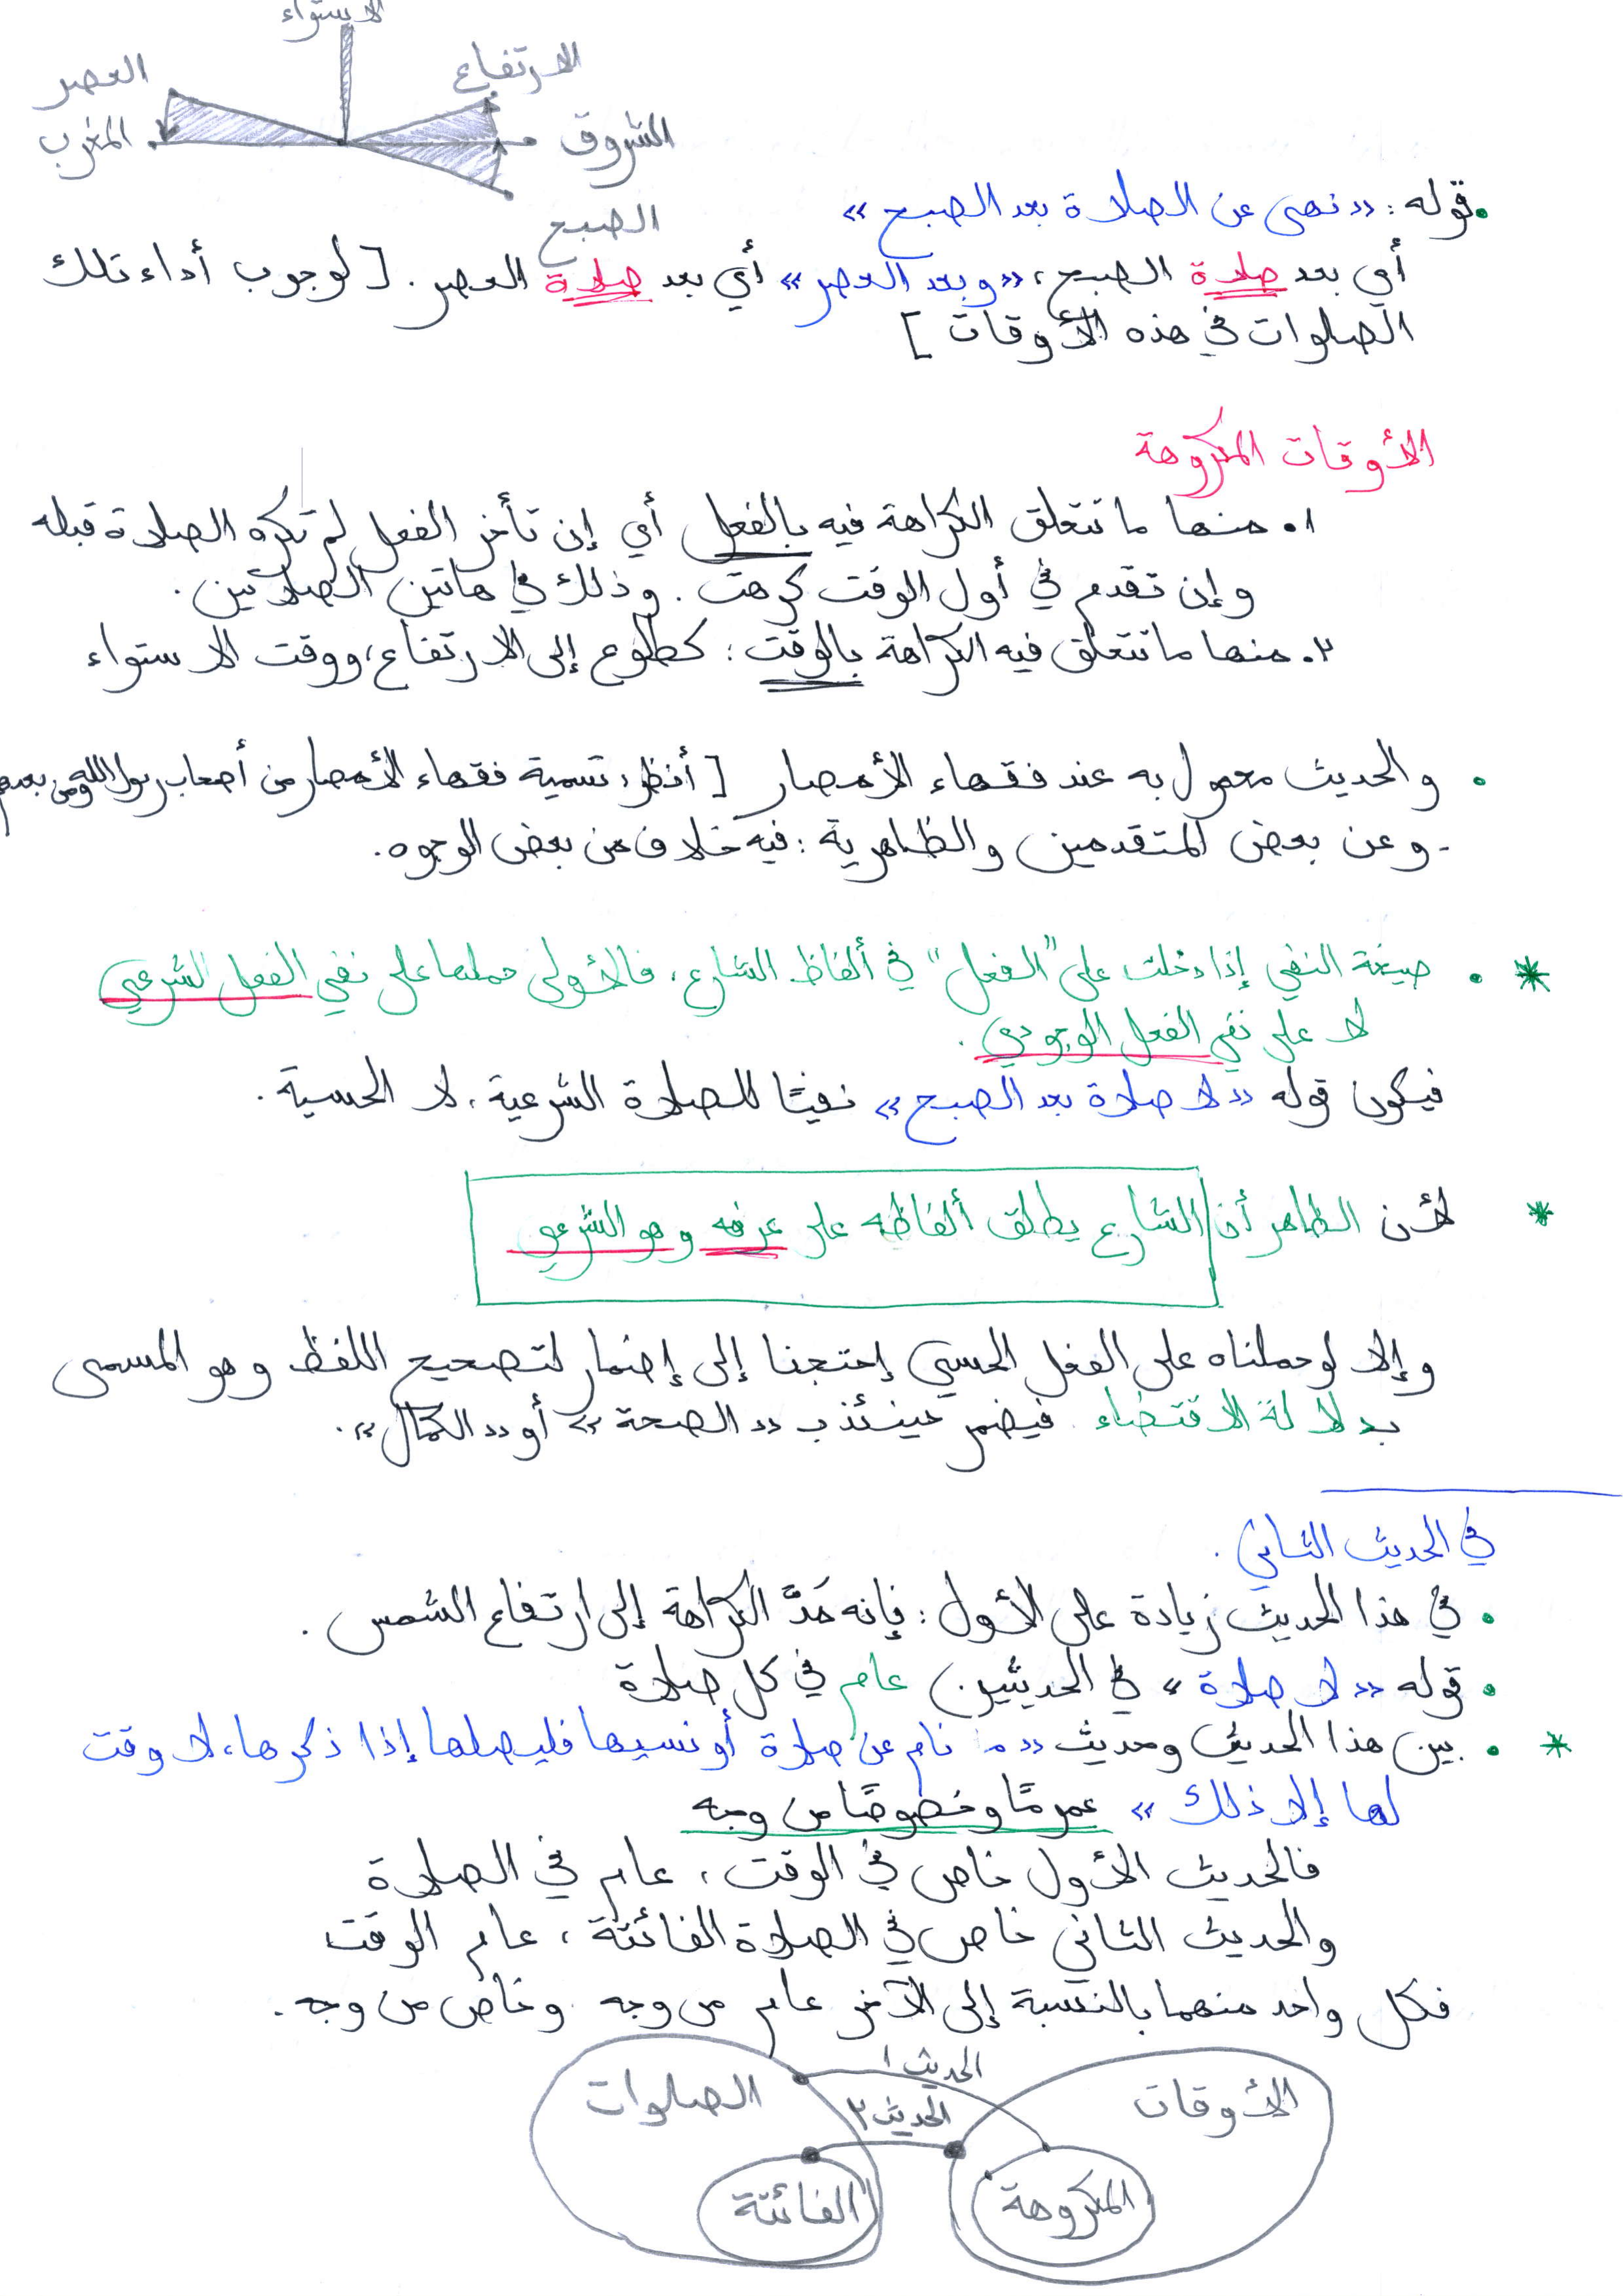 الاستواء
العصر
الارتفاع
المغرب
الشروق
الصبح
قوله: «نهى عن الصلاة بعد الصبح»
أي بعد صلاة الصبح، «وبعد العصر» أي بعد صلاة العصر. [لوجوب أداء تلك
الصلوات في هذه الأوقات]
الأوقات المكروهة
١. منها ما تتعلق الكراهة فيه بالفعل أي إن تأخر الفعل لم تكره الصلاة قبله
وإن تقدم في أول الوقت كرهت. وذلك في هاتين الصلاتين.
٢. منها ما تتعلق فيه الكراهة بالوقت: كطلوع إلى الارتفاع، ووقت الاستواء
• والحديث معمول به عند فقهاء الأمصار [أنظر: تسمية فقهاء الأمصار من أصحاب رسول الله ومن بعدهم
- وعن بعض المتقدمين والظاهرية: فيه خلاف من بعض الوجوه.
* • صيغة النفي إذا دخلت على "الفعل" في ألفاظ الشارع، فالأولى حملها على نفي الفعل الشرعي
لا على نفي الفعل الوجودي.
فيكون قوله «لا صلاة بعد الصبح» نفيًا للصلاة الشرعية، لا الحسية.
* لأن الظاهر أن الشارع يطلق ألفاظه على عرفه وهو الشرعي
وإلا لو حملناه على الفعل الحسي إحتجنا إلى إضمار لتصحيح اللفظ وهو المسمى
بدلالة الاقتضاء. فيضمر حينئذ بـ «الصحة» أو «الكمال».
في الحديث الثاني.
• في هذا الحديث زيادة على الأول: فإنه مَدَّ الكراهة إلى ارتفاع الشمس.
• قوله «لا صلاة» في الحديثين عام في كل صلاة
* • بين هذا الحديث وحديث «من نام عن صلاة أو نسيها فليصلها إذا ذكرها، لا وقت
لها إلا ذلك» عمومًا وخصوصًا من وجه
فالحديث الأول خاص في الوقت، عام في الصلاة
والحديث الثاني خاص في الصلاة الفائتة، عام الوقت
فكل واحد منهما بالنسبة إلى الآخر عام من وجه وخاص من وجه.
الحديث ١
الأوقات
الصلوات
الحديث ٢
المكروهة
الفائتة